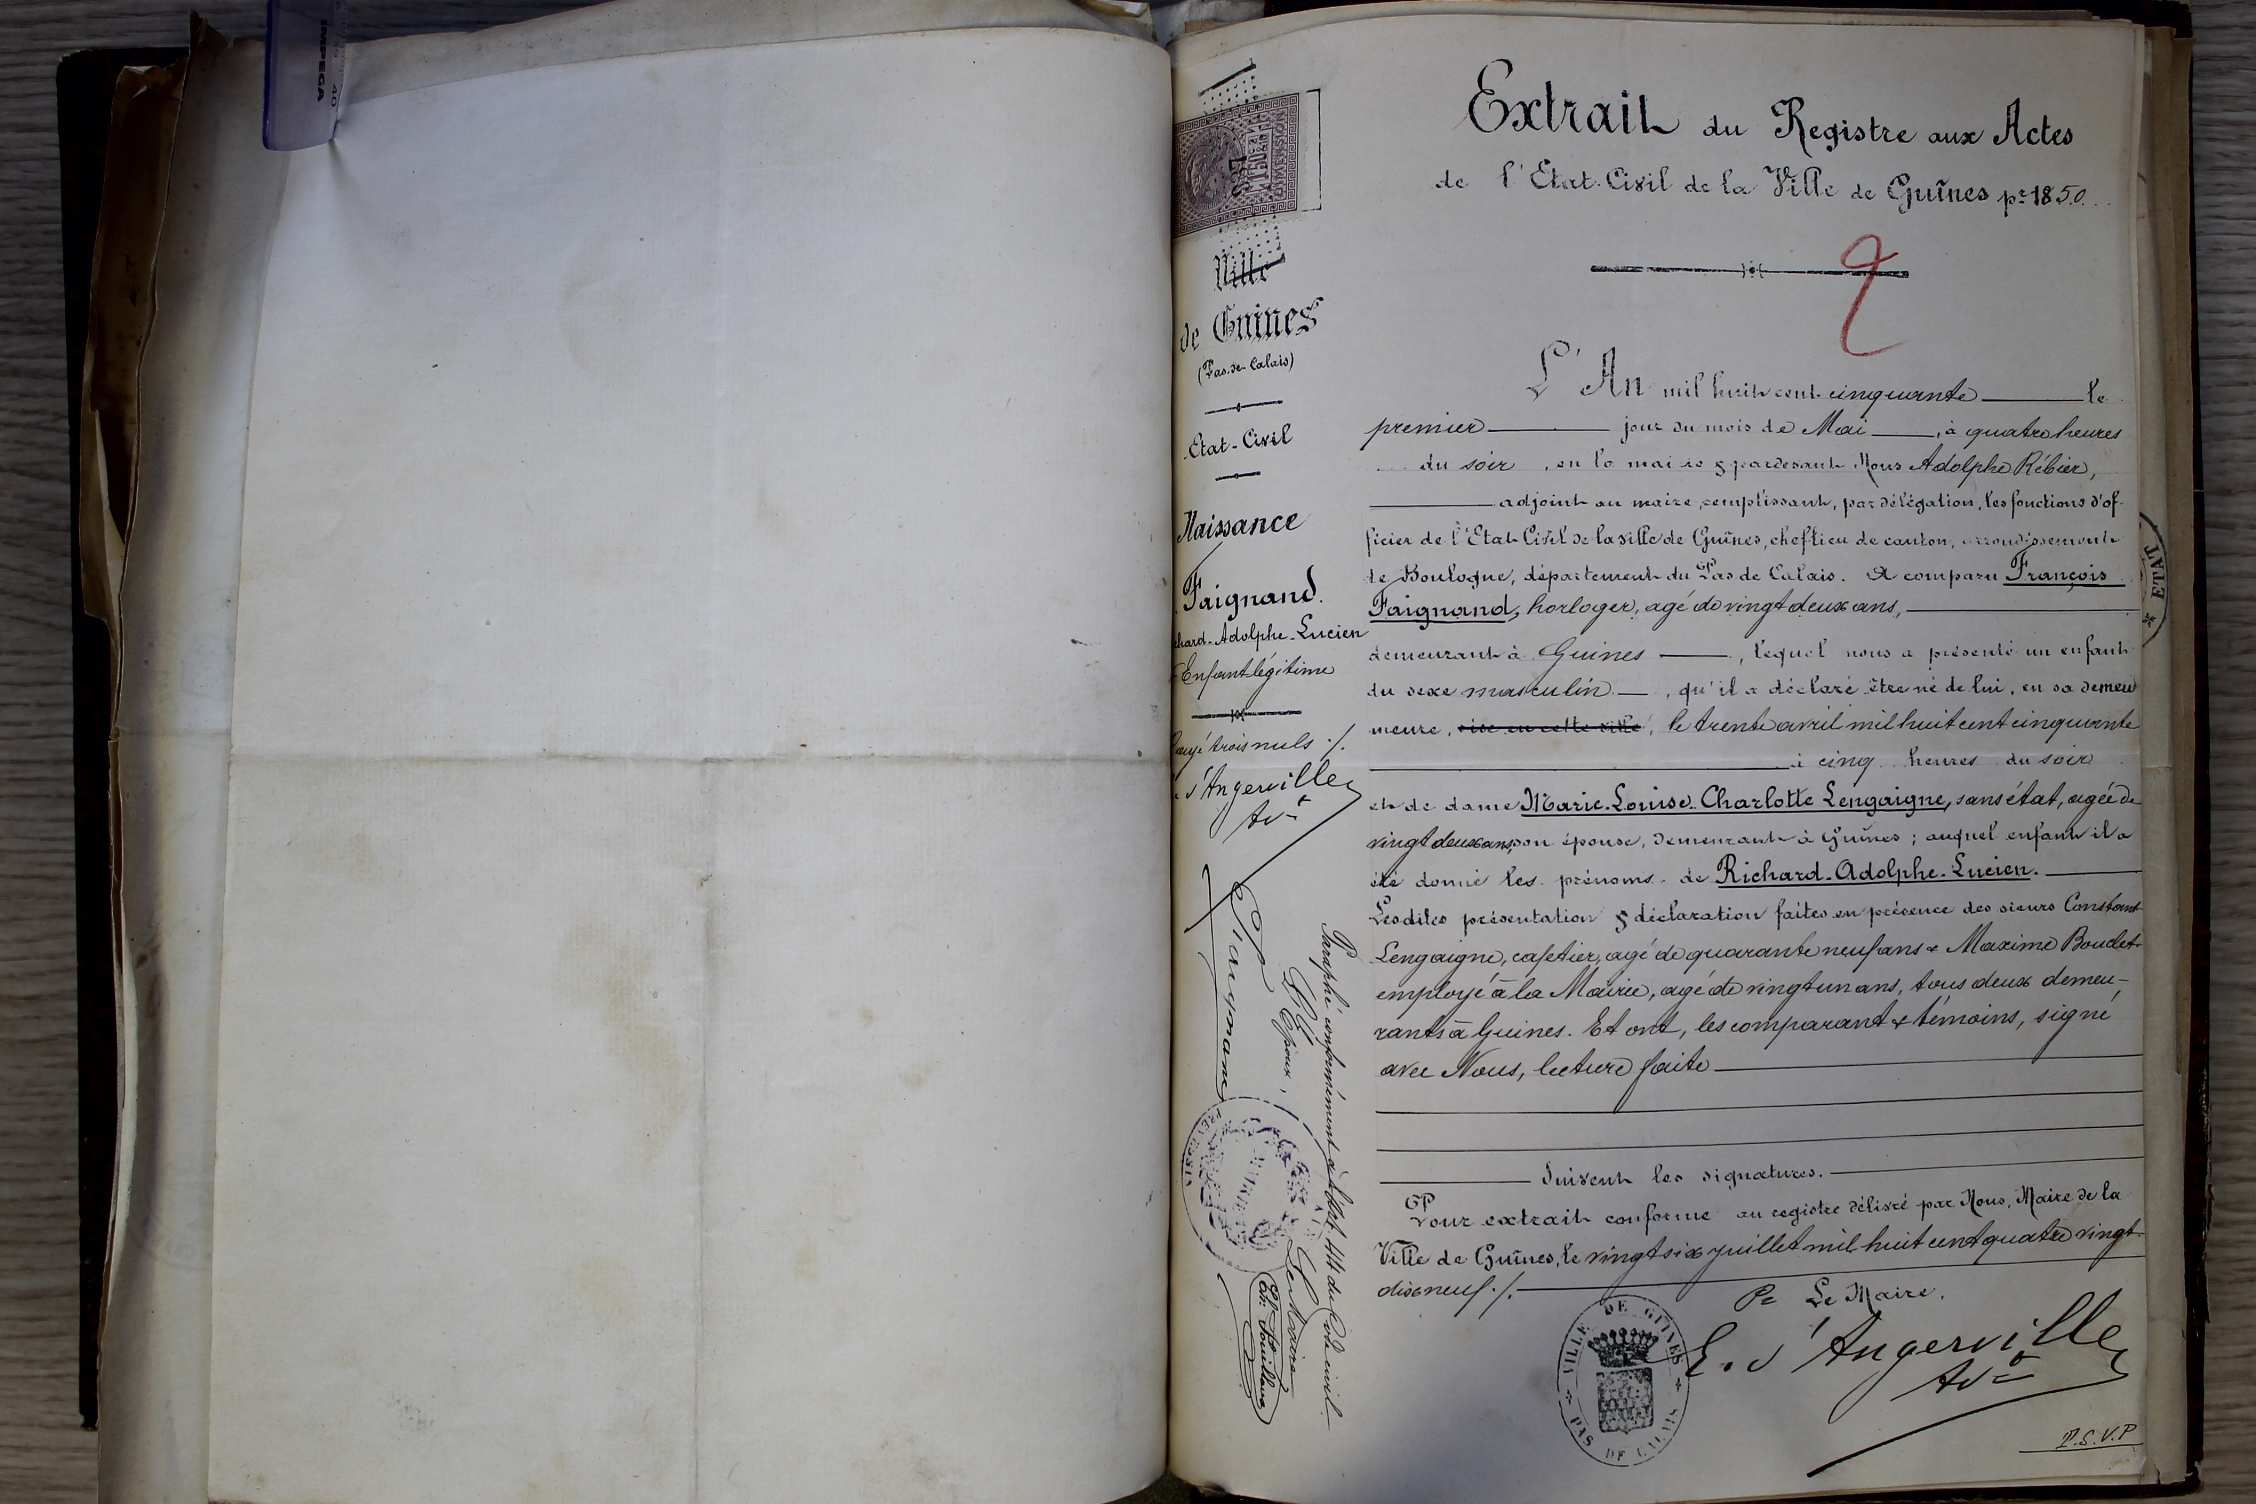 IMPEGA
40
Extrait du Registre aux Actes
de l'Etat-Civil de la Ville de Guînes pr 1850.
Ville
de Guines
(Pas-de-Calais)
Etat-Civil
Naissance
Faignand.
chard-Adolphe-Lucien
Enfant légitime
rayé trois nuls ./.
d'Angerville
Adt
L'An mil huit cent cinquante le
premier jour du mois de Mai, à quatre heures
du soir, en la mairie & pardevant Nous Adolphe Rébier,
adjoint au maire, remplissant, par délégation, les fonctions d'of-
ficier de l'Etat-Civil de la ville de Guînes, chef-lieu de canton, arrondissement
de Boulogne, département du Pas de Calais. A comparu François
Faignand, horloger, agé de vingt deux ans,
demeurant à Guines, lequel nous a présenté un enfant
du sexe masculin, qu'il a déclaré être né de lui, en sa demeu
meure, sise en cette ville, le trente avril mil huit cent cinquante
à cinq heures du soir
et de dame Marie-Louise-Charlotte Lengaigne, sans état, agée de
vingt deux ans, son épouse, demeurant à Guînes ; auquel enfant il a
été donné les prénoms de Richard-Adolphe-Lucien.
Lesdites présentation & déclaration faites en présence des sieurs Constant
Lengaigne, cafetier, agé de quarante neuf ans & Maxime Boudet
employé à la Mairie, agé de vingt un ans, tous deux demeu-
rants à Guines. Et ont, les comparant & témoins, signé
avec Nous, lecture faite
Suivent les signatures.
Pour extrait conforme au registre délivré par Nous, Maire de la
Ville de Guînes, le vingt six juillet mil huit cent quatre vingt
dix neuf ./.
Pr Le Maire,
E. d'Angerville
Adt
VILLE DE GUINES
PAS DE CALAIS
P.S.V.P
Paraphé conformément à l'art. 44 du Code civil
L'Epoux,
Le Maire
ETAT